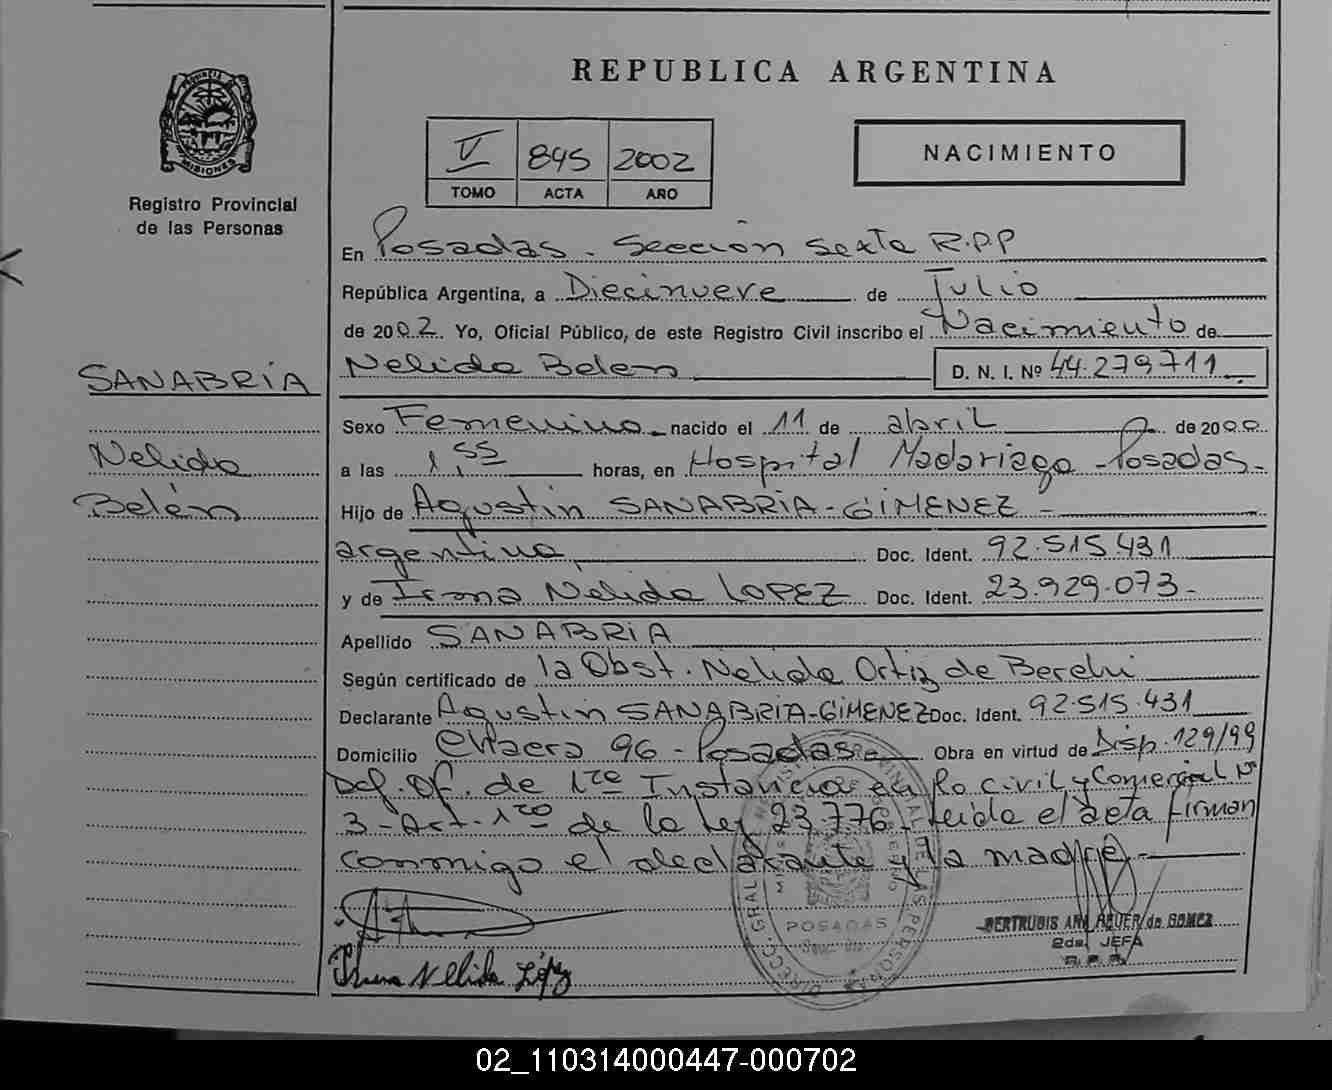 REPUBLICA ARGENTINA
PROVINCIA DE
MISIONES
Registro Provincial
de las Personas
V 895 2002
TOMO ACTA AÑO
NACIMIENTO
En Posadas. Sección Sexta R.P.P
República Argentina, a Diecinueve de Julio
de 2002 Yo, Oficial Público, de este Registro Civil inscribo el Nacimiento de
SANABRIA
Nelida
Belén
Nelida Belen D. N. I. Nº 44.279711
Sexo Femenino nacido el 11 de abril de 2000
a las 1,55 horas, en Hospital Madariaga - Posadas -
Hijo de Agustin SANABRIA - GIMENEZ -
argentino Doc. Ident. 92.515.431
y de Irma Nelida LOPEZ Doc. Ident. 23.929.073 -
Apellido SANABRIA
Según certificado de la Obst. Nelida Ortiz de
Declarante Agustin SANABRIA - GIMENEZ Doc. Ident. 92.515.431
Domicilio Chacra 96 - Posadas - Obra en virtud de Disp. 129/99
Def. Of. de 1ra Instancia en lo civil y Comercial Nº
3 - Art. 1ro de la Ley 23.776 - leida el acta firman
conmigo el declarante y la madre -
POSADAS
GERTRUDIS ANA de GOMEZ
2da. JEFA
R.P.P.
Irma Nelida López
02_110314000447-000702